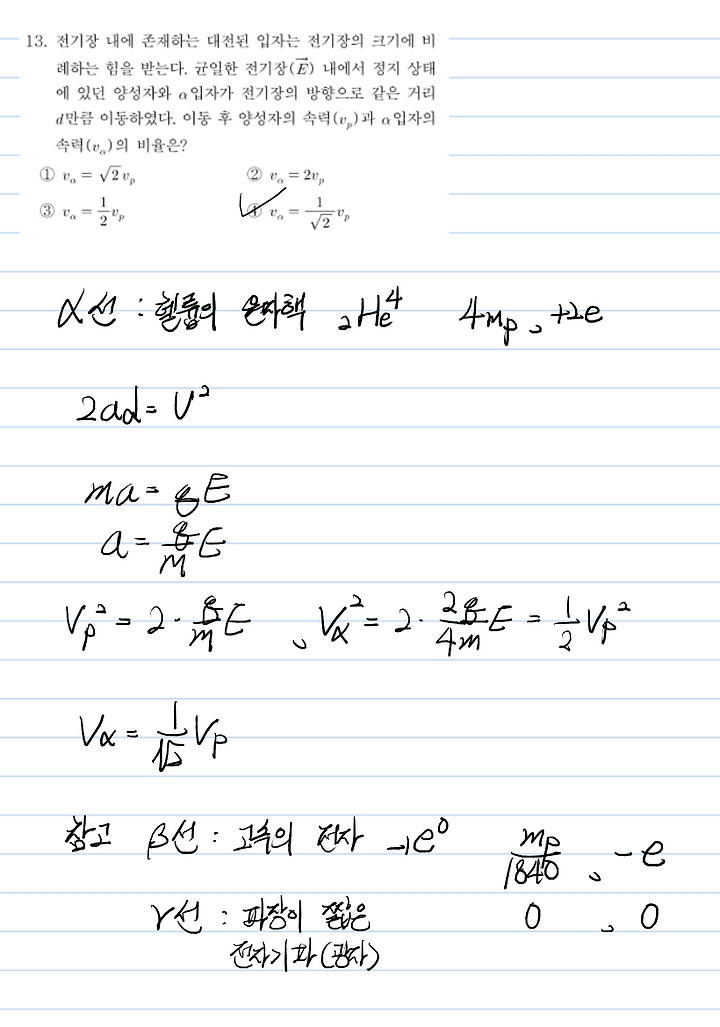 13. 전기장 내에 존재하는 대전된 입자는 전기장의 크기에 비
례하는 힘을 받는다. 균일한 전기장(E⃗) 내에서 정지 상태
에 있던 양성자와 α입자가 전기장의 방향으로 같은 거리
d만큼 이동하였다. 이동 후 양성자의 속력(vₚ)과 α입자의
속력(v_α)의 비율은?
① v_α = √2 vₚ ② v_α = 2vₚ
③ v_α = 1/2 vₚ ④ v_α = 1/√2 vₚ
α선 : 헬륨의 원자핵 ₂He⁴ 4mₚ, +2e
2ad = V²
ma = qE
a = q/m E
Vₚ² = 2 · q/m E , V_α² = 2 · 2q/4m E = 1/2 Vₚ²
V_α = 1/√2 Vₚ
참고 β선 : 고속의 전자 ₋₁e⁰ mₚ/1840 , -e
γ선 : 파장이 짧은 0 , 0
전자기파(광자)